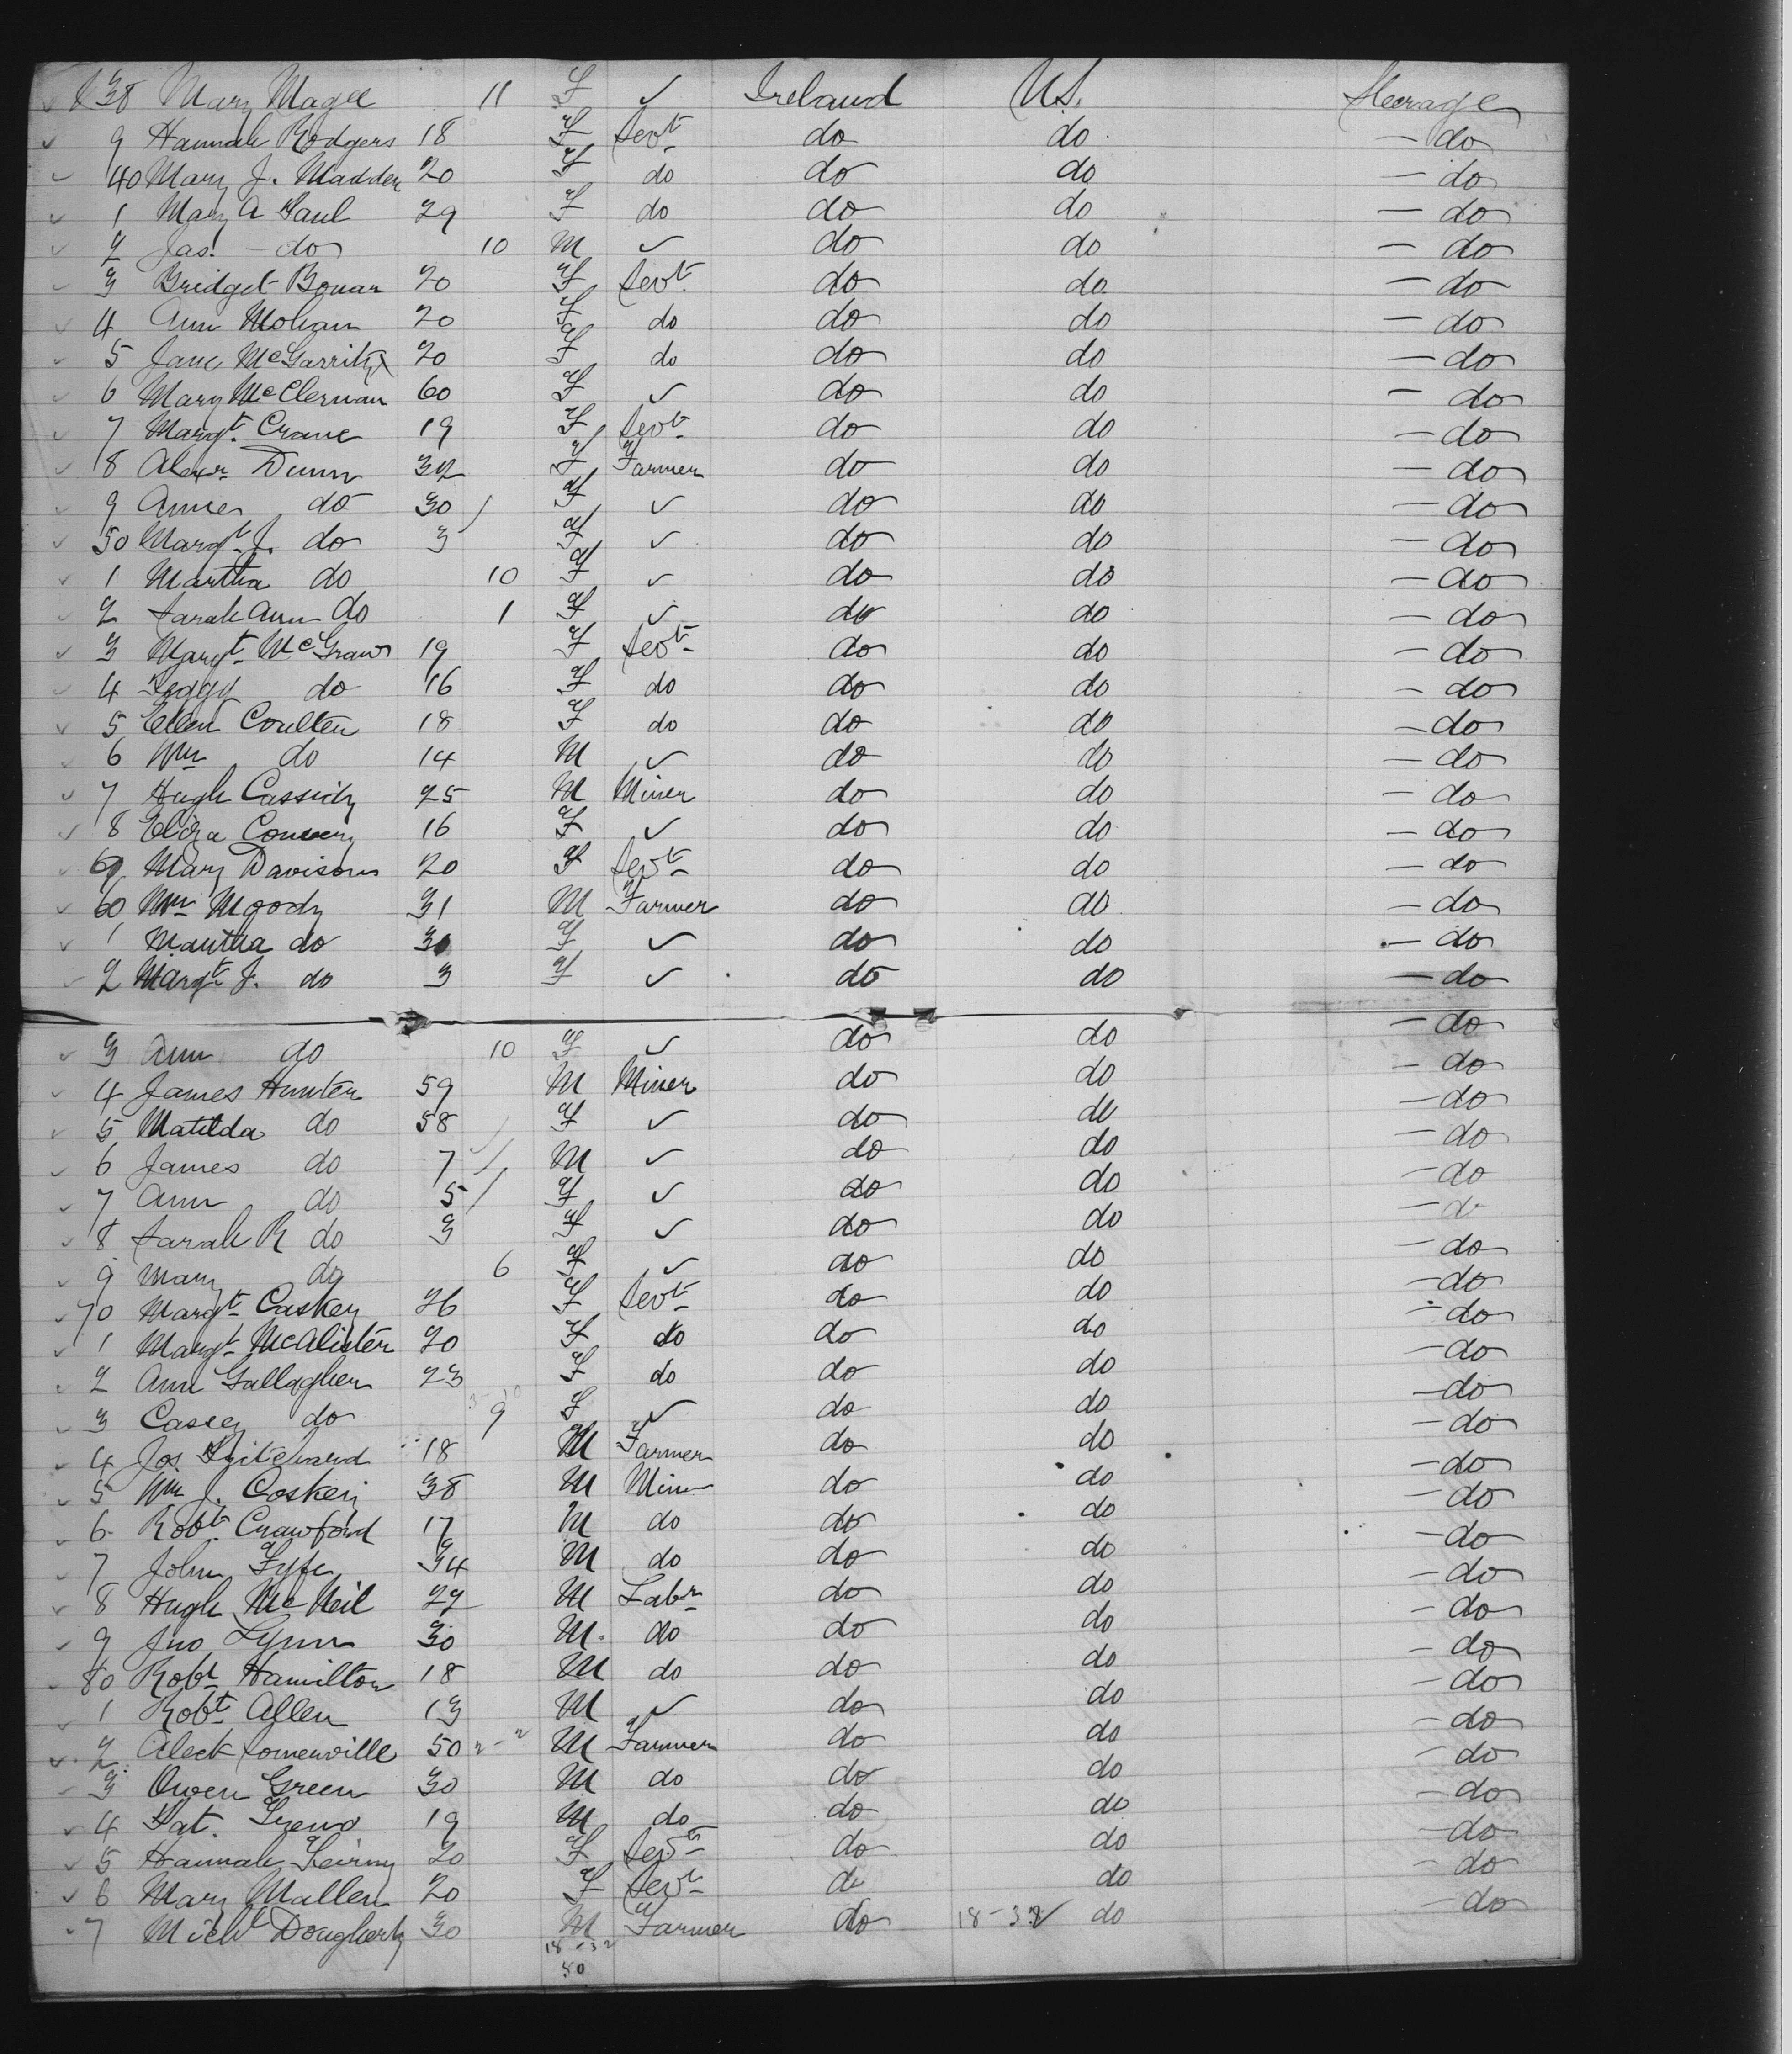 138 Mary Magee 11 F ✓ Ireland U.S. Steerage
9 Hannah Rodgers 18 F Servt do do — do
40 Mary J. Madden 20 F do do do — do
1 Mary A Gaul 29 F do do do — do
2 Jas. — do 10 M ✓ do do — do
3 Bridget Bonar 20 F Servt do do — do
4 Ann Mohan 20 F do do do — do
5 Jane McGarrity 20 F do do do — do
6 Mary McClernan 60 F ✓ do do — do
7 Margt. Crane 19 F Servt do do — do
8 Alexr Dunn 32 F Farmer do do — do
9 Annie do 30 F ✓ do do — do
50 Margt J. do 3 F ✓ do do — do
1 Martha do 10 F ✓ do do — do
2 Sarah Ann do 1 F ✓ do do — do
3 Margt McGraw 19 F Servt do do — do
4 Peggy do 16 F do do do — do
5 Ellen Coulter 18 F do do do — do
6 Wm do 14 M ✓ do do — do
7 Hugh Cassidy 25 M Miner do do — do
8 Eliza Convery 16 F ✓ do do — do
69 Mary Davison 20 F Servt do do — do
60 Wm Moody 31 M Farmer do do — do
1 Martha do 30 F ✓ do do — do
2 Margt J. do 3 F ✓ do do — do
3 Ann do 10 F ✓ do do — do
4 James Hunter 59 M Miner do do — do
5 Matilda do 58 F ✓ do do — do
6 James do 7 M ✓ do do — do
7 Ann do 5 F ✓ do do — do
8 Sarah R do 3 F ✓ do do — do
9 Mary do 6 F ✓ do do — do
70 Margt Caskey 26 F Servt do do — do
1 Margt McAlister 20 F do do do — do
2 Ann Gallagher 23 F do do do — do
3 Casey do 9 F ✓ do do — do
4 Jos Pritchard 18 M Farmer do do — do
5 Wm J. Coskery 38 M Miner do do — do
6 Robt. Crawford 17 M do do do — do
7 John Fyfe 34 M do do do — do
8 Hugh McNeil 22 M Labr do do — do
9 Jno Lynn 30 M. do do do — do
80 Robt Hamilton 18 M do do do — do
1 Robt Allen 13 M ✓ do do — do
2 Aleck Somerville 50 M Farmer do do — do
3 Owen Green 30 M do do do — do
4 Pat. 19 M do do do — do
5 Hannah 20 F Servt do do — do
6 Mary Mallen 20 F Servt do do — do
7 Michl Dougherty 30 M Farmer do 18-32 ✓ do — do
18-32
50